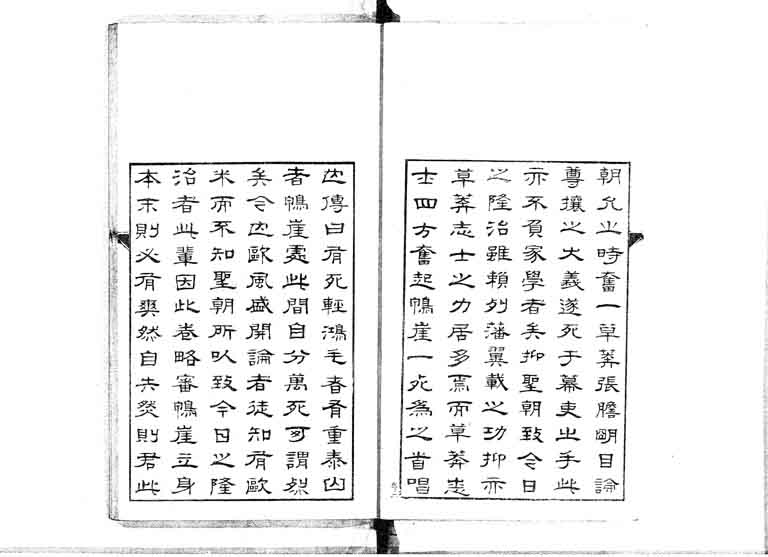 朝允之時奮一草莽張膽明目論
尊攘之大義遂死于幕吏之手此
亦不負家學者矣抑聖朝致今日
之隆治雖賴列藩翼載之功抑亦
草莽志士之力居多焉而草莽志
士四方奮起鴨崖一死為之首唱
也傳曰有死輕鴻毛者有重泰山
者鴨崖處此間自分萬死可謂烈
矣今也歐風盛開論者徒知有歐
米而不知聖朝所以致今日之隆
治者此輩因此卷略審鴨崖立身
本末則必有爽然自失然則君此